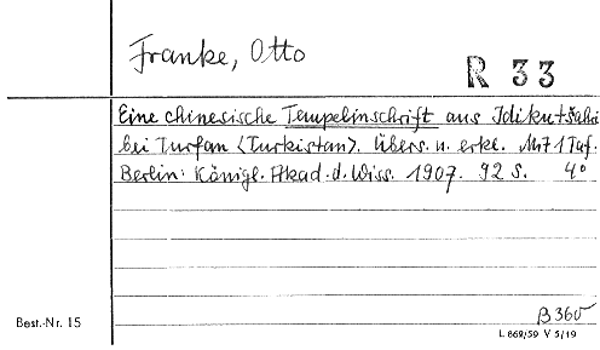 Franke, Otto
R 33
Eine chinesische Tempelinschrift aus Idikutšahri
bei Turfan <Turkistan>. Übers. u. erkl. Mit 1 Taf.
Berlin: Königl. Akad. d. Wiss. 1907. 92 S. 4°
B 360
Best.-Nr. 15
L 869/59 V 5/19